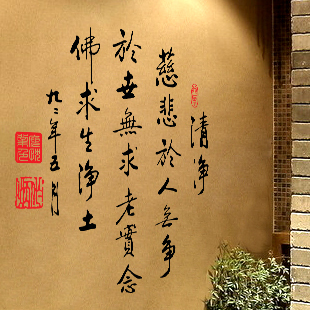 清净
慈悲於人無争
於世無求老實念
佛求生淨土
九二年五月